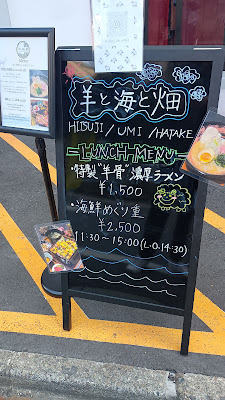 羊と海と畑
HITSUJI / UMI / HATAKE
LUNCH MENU
・特製"羊骨"濃厚ラーメン
¥1,500
・海鮮めぐり重
¥2,500
11:30〜15:00(L.O.14:30)